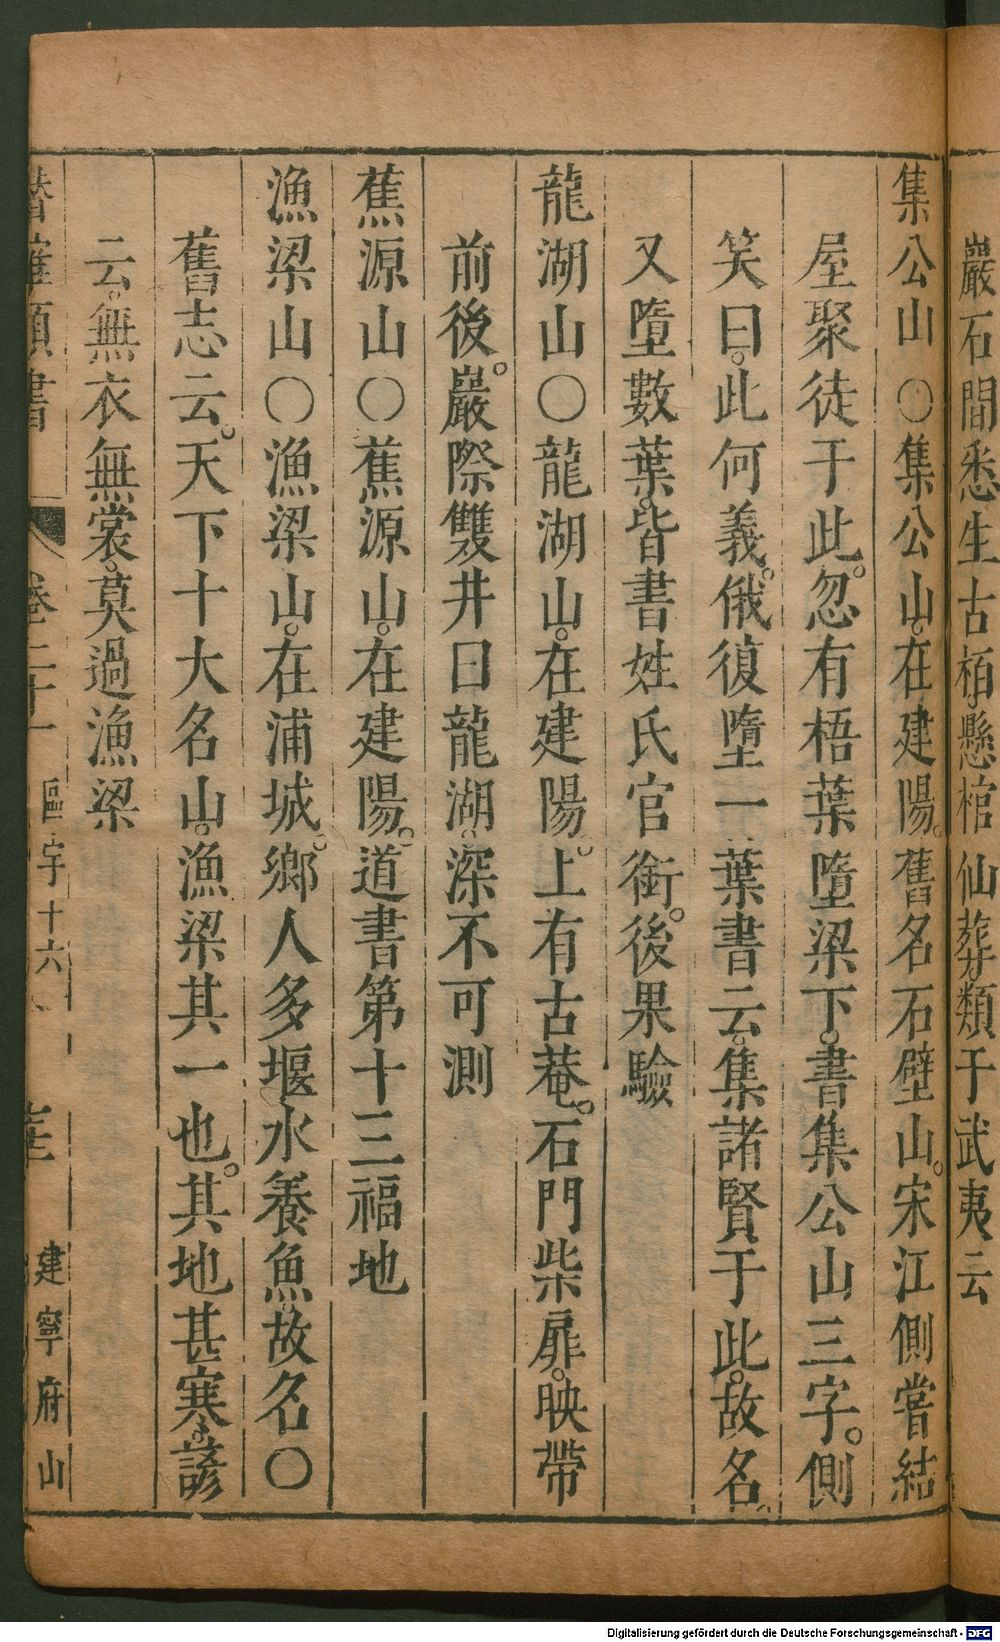 巖石間悉生古栢。懸棺仙葬。類于武夷云
集公山〇集公山。在建陽。舊名石壁山。宋江側嘗結
屋聚徒于此。忽有梧葉墮梁下。書集公山三字。側
笑曰。此何義。俄復墮一葉書云。集諸賢于此。故名。
又墮數葉。皆書姓氏官銜。後果驗
龍湖山〇龍湖山。在建陽。上有古菴。石門柴扉。映帶
前後。巖際雙井曰龍湖。深不可測
蕉源山〇蕉源山。在建陽。道書第十三福地
漁梁山〇漁梁山。在浦城。鄉人多堰水養魚。故名〇
舊志云。天下十大名山。漁梁其一也。其地甚寒。諺
云。無衣無裳。莫過漁梁
類書 卷二十一 區宇十六 建寧府山
Digitalisierung gefördert durch die Deutsche Forschungsgemeinschaft - DFG